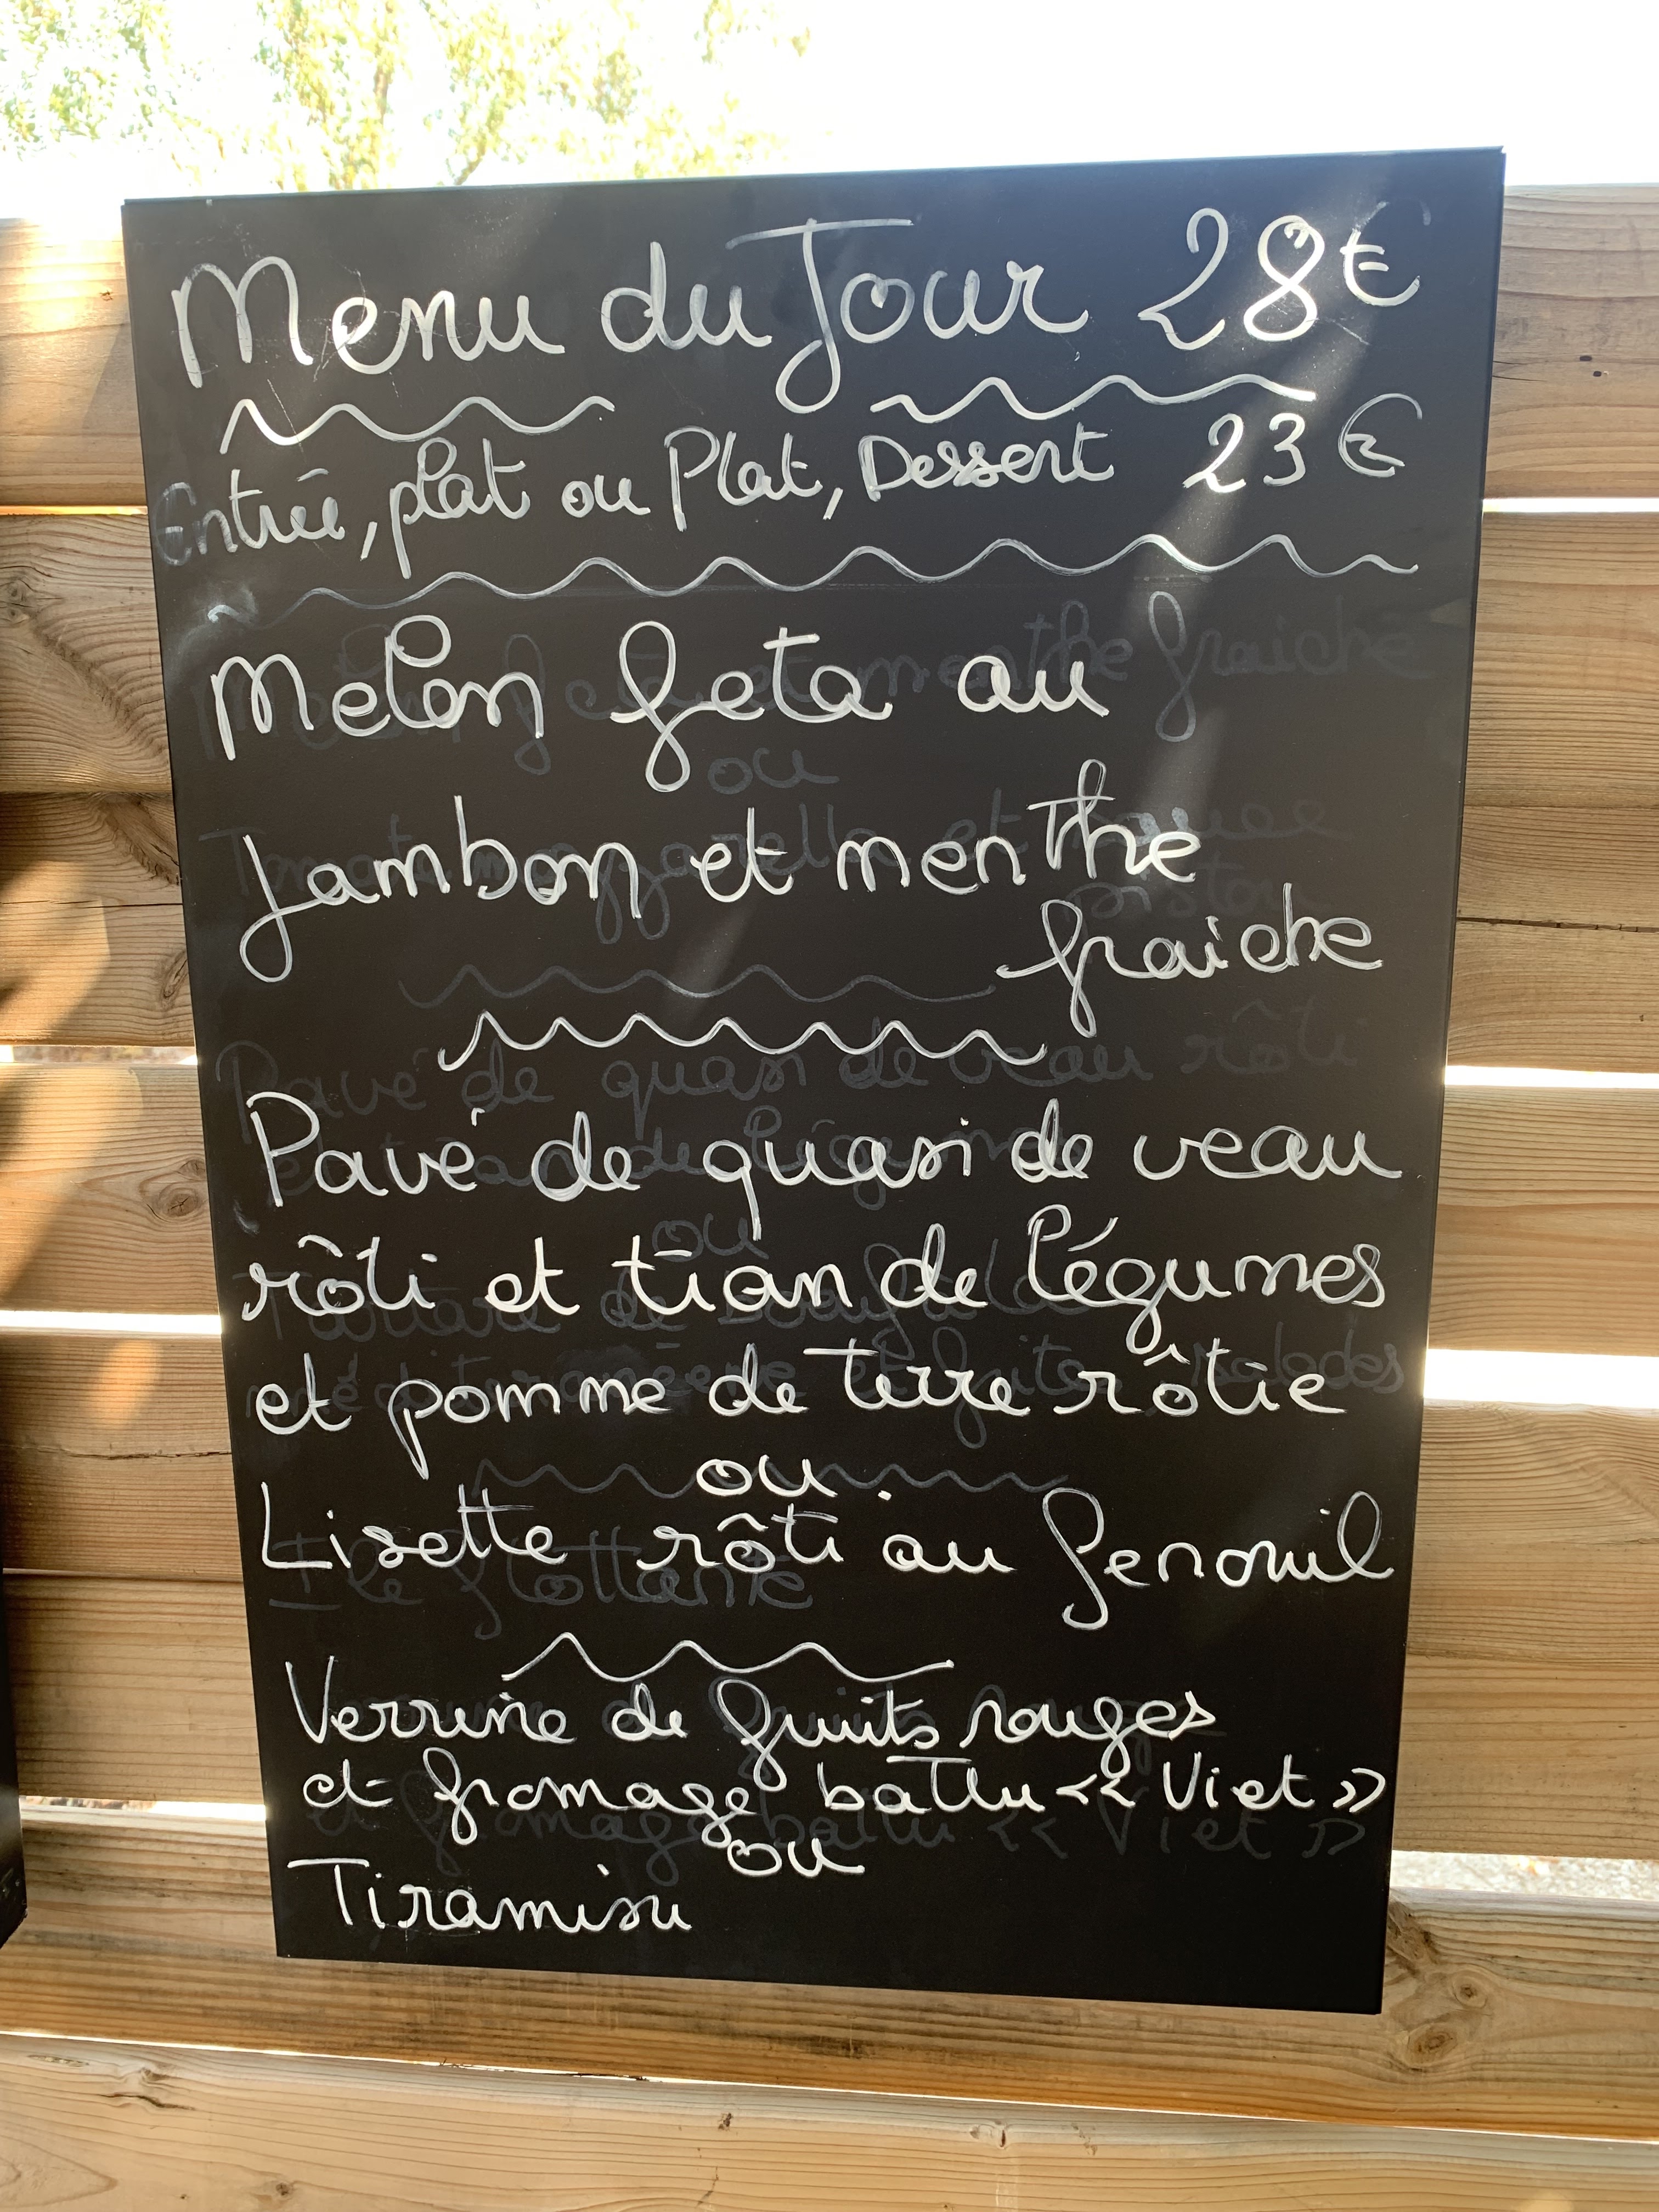 Menu du Jour 28€
Entrée, plat ou Plat, Dessert 23€
Melon feta au
Jambon et menthe
fraiche
Pavé de quasi de veau
rôti et tian de légumes
et pomme de terre rôtie
ou
Lisette rôti au fenouil
Verrine de fruits rouges
et fromage battu << Viet >>
ou
Tiramisu